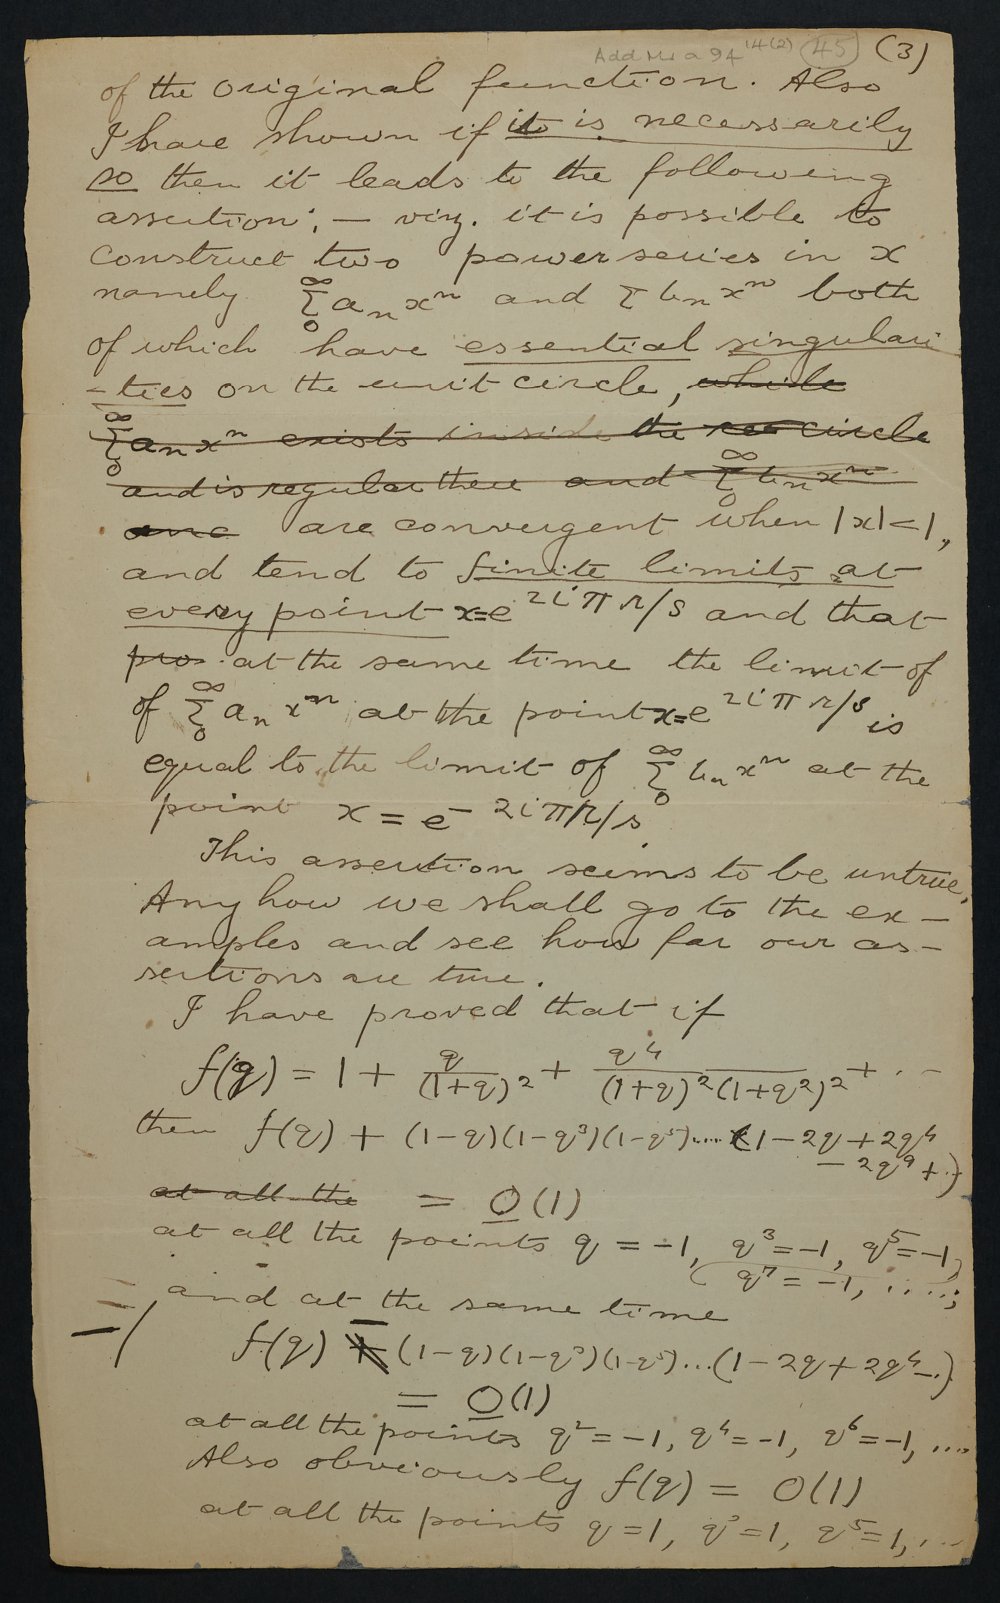 Add Ms a 94 14(2) (45) (3)
of the original function. Also
I have shown if it is necessarily
so then it leads to the following
assertion: — viz. it is possible to
construct two power series in x
namely ∑₀^∞ aₙxⁿ and Σ bₙxⁿ both
of which have essential singulari
-ties on the unit circle, while
∑₀^∞ aₙxⁿ exists inside the circle
and is regular there and ∑₀^∞ bₙxⁿ
are convergent when |x|<1,
and tend to finite limits at
every point x=e^{2iπr/s} and that
pro at the same time the limit of
of ∑₀^∞ aₙxⁿ at the point x=e^{2iπr/s} is
equal to the limit of ∑₀^∞ bₙxⁿ at the
point x = e^{-2iπr/s}
This assertion seems to be untrue.
Anyhow we shall go to the ex-
amples and see how far our as-
sertions are true.
I have proved that if
f(q) = 1 + q/(1+q)² + q⁴/(1+q)²(1+q²)² + ···
then f(q) + (1-q)(1-q³)(1-q⁵)....(1-2q+2q⁴
-2q⁹+··)
at all the = O(1)
at all the points q = -1, q³=-1, q⁵=-1,
q⁷=-1, .....;
and at the same time
f(q) - (1-q)(1-q³)(1-q⁵)...(1-2q+2q⁴-..)
= O(1)
at all the points q²=-1, q⁴=-1, q⁶=-1, ....
Also obviously f(q) = O(1)
at all the points q=1, q³=1, q⁵=1, ...